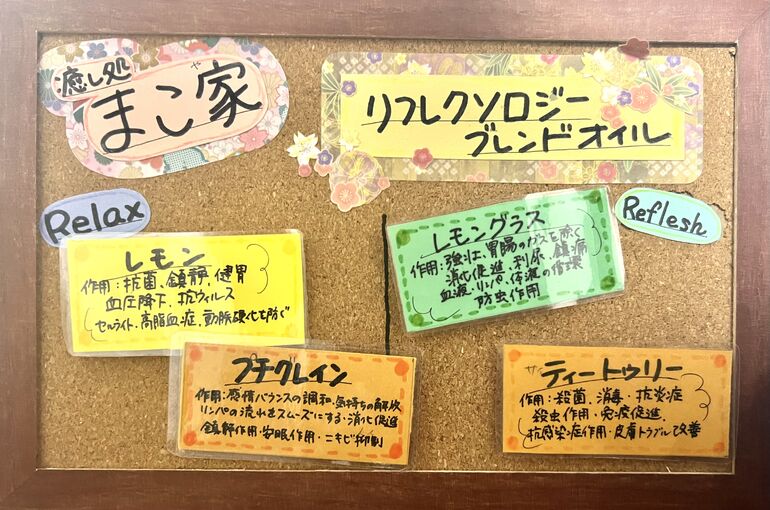 癒し処
まこ家
や
リフレクソロジー
ブレンドオイル
Relax
レモン
作用:抗菌、鎮静、健胃
血圧降下、抗ウィルス
セルライト・高脂血症、動脈硬化を防ぐ
プチグレイン
作用:感情バランスの調和、気持ちの解放
リンパの流れをスムーズにする・消化促進
鎮静作用・安眠作用・ニキビ抑制
Reflesh
レモングラス
作用:強壮、胃腸のガスを除く
消化促進、利尿、鎮痛
血液・リンパ・体液の循環
防虫作用
ティートゥリー
作用:殺菌・消毒・抗炎症
殺虫作用・免疫促進、
抗感染症作用・皮膚トラブル改善